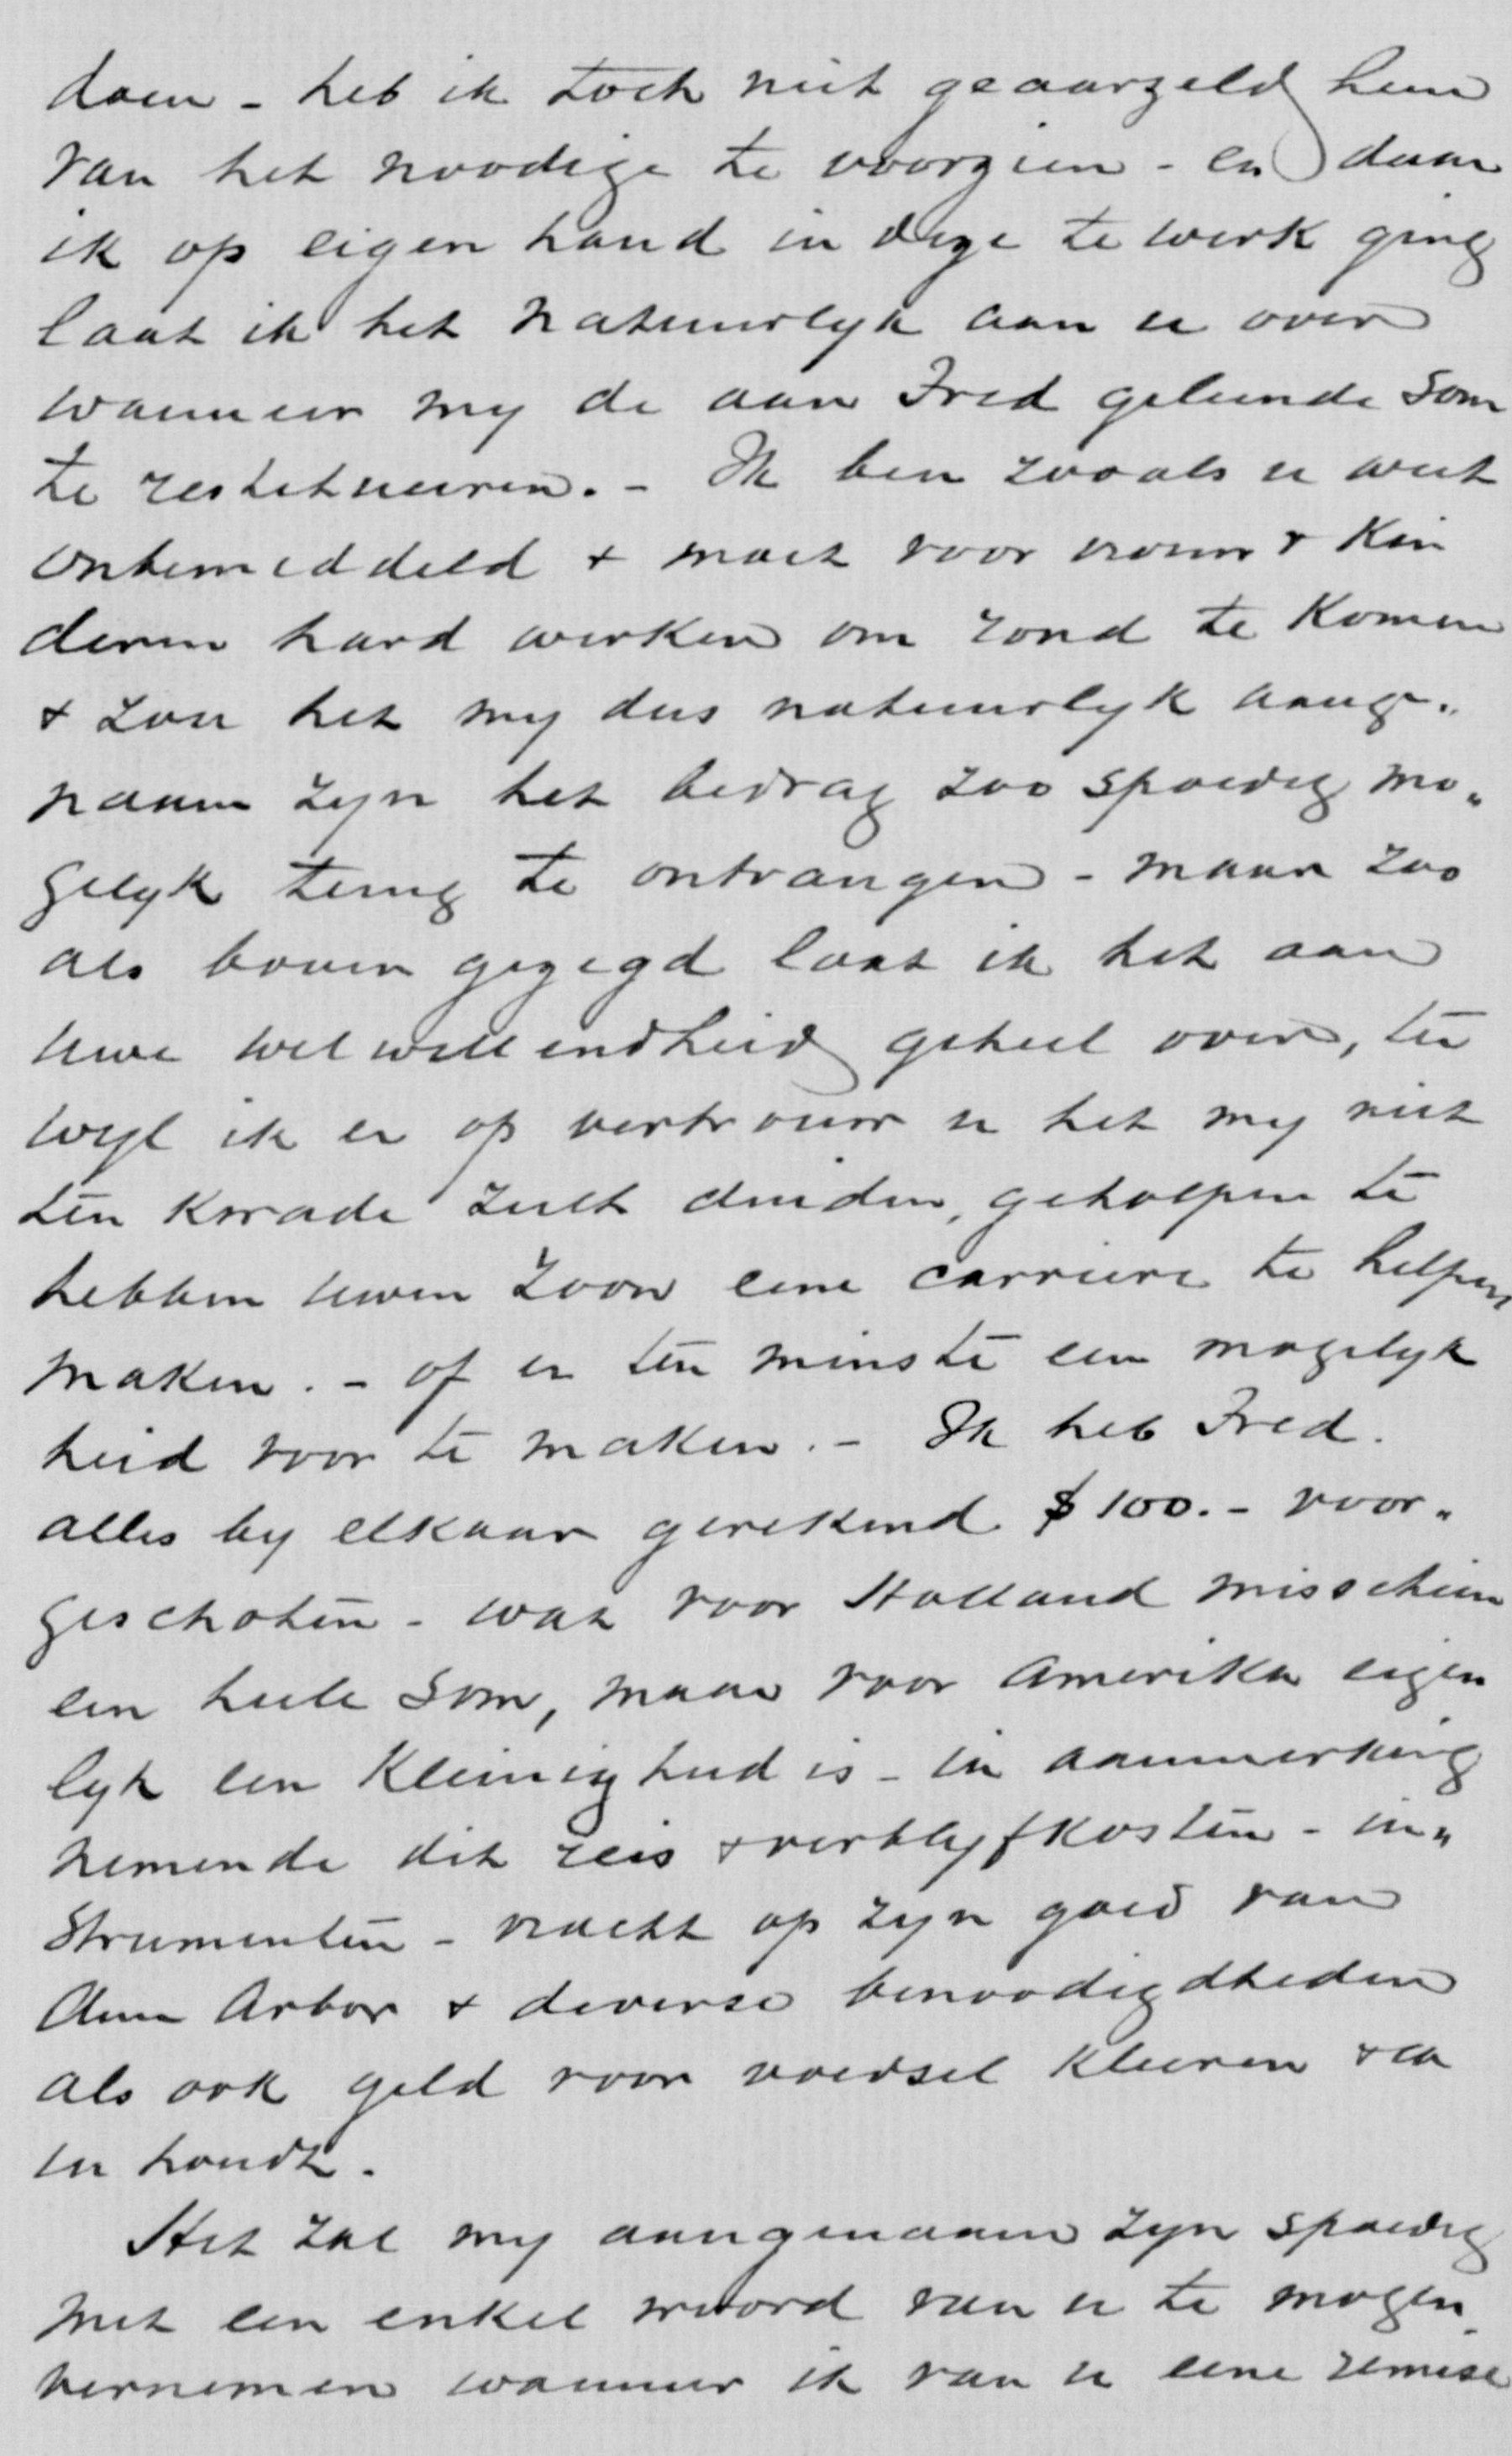 doen - heb ik toch niet geaarzeld hem
van het noodige te voorzien - en daar
ik op eigen hand in deze te werk ging
laat ik het natuurlyk aan u over
wanneer my de aan Fred geleende som
te restitueeren. - Ik ben zooals u weet
onbemiddeld + moet voor vrouw + kin
deren hard werken om rond te komen
+ zou het my dus natuurlyk aange„
naam zyn het bedrag zoo spoedig mo„
gelyk terug te ontvangen - maar zoo
als boven gezegd laat ik het aan
uwe welwillendheid geheel over, ter
wyl ik er op vertrouw u het my niet
ten kwade zult duiden, geholpen te
hebben uwen zoon eene carriere te helpen
maken. - of er ten minste een mogelyk
heid voor te maken. - Ik heb Fred.
alles by elkaar gerekend $ 100. - voor„
geschoten - wat voor Holland misschien
een heele som, maar voor Amerika eigen
lyk een kleinigheid is - in aanmerking
nemende dit reis + verblyfkosten - in„
strumenten - vracht op zyn goed van
Ann Arbor + diverse benoodigdheden
als ook geld voor voedsel kleeren + ca
in houdt.
Het zal my aangenaam zyn spoedig
met een enkel woord van u te mogen
vernemen wanneer ik van u eene remise